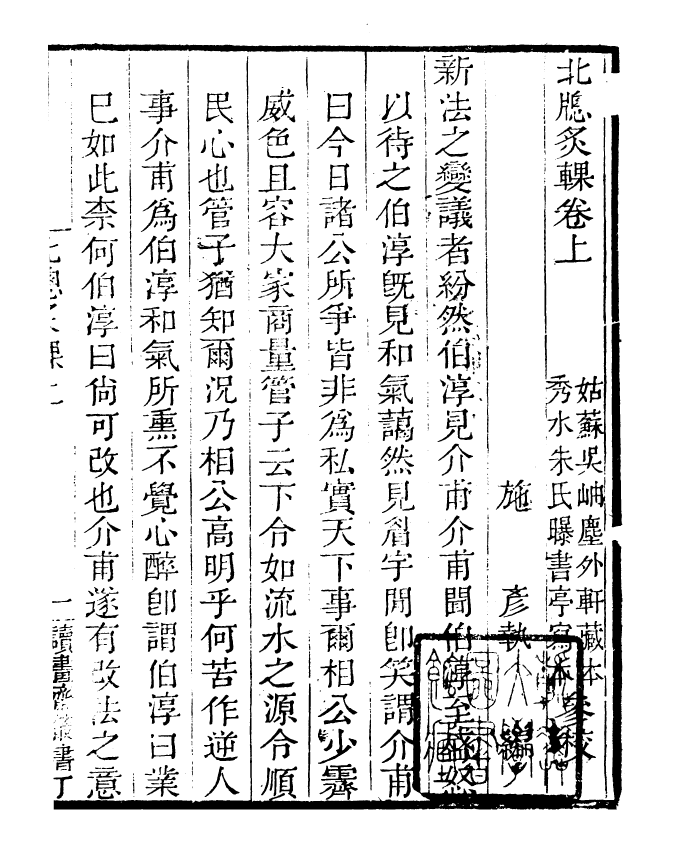 北牕炙輠卷上
姑蘇吳岫塵外軒藏本
秀水朱氏曝書亭寫本參校
施 彥執 編
新法之變議者紛然伯淳見介甫介甫聞伯淳至
以待之伯淳旣見和氣藹然見眉宇閒卽笑謂介甫
曰今日諸公所爭皆非爲私實天下事爾相公少霽
威色且容大家商量管子云下令如流水之源令順
民心也管子猶知爾況乃相公高明乎何苦作逆人
事介甫爲伯淳和氣所熏不覺心醉卽謂伯淳曰業
已如此柰何伯淳曰尙可改也介甫遂有改法之意
一 讀畫齋叢書丁